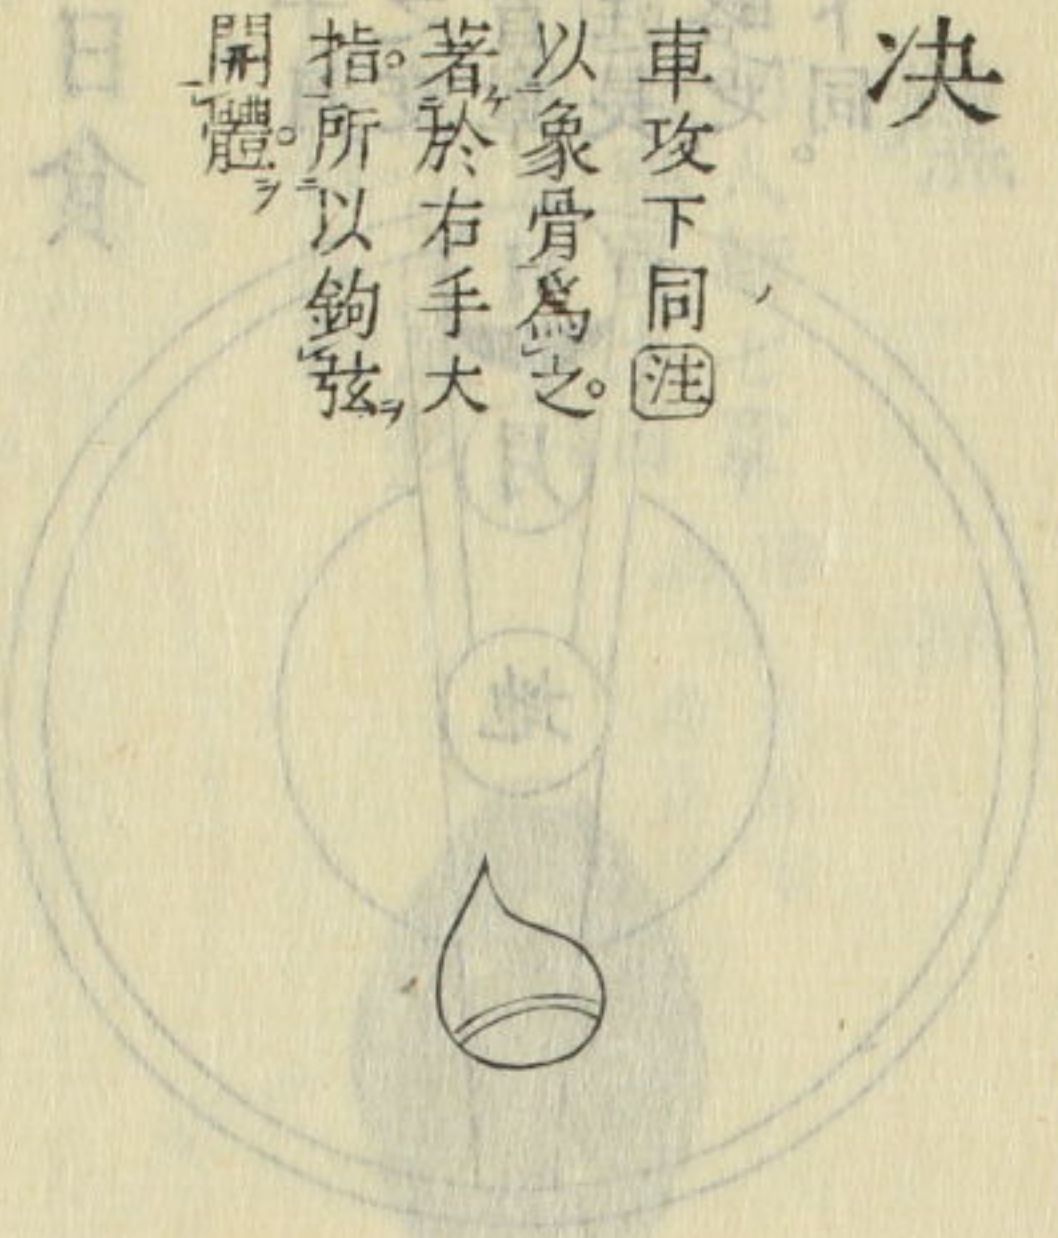 决
車攻下同注
以象骨爲之。
著於右手大
指。所以鉤弦
開體。